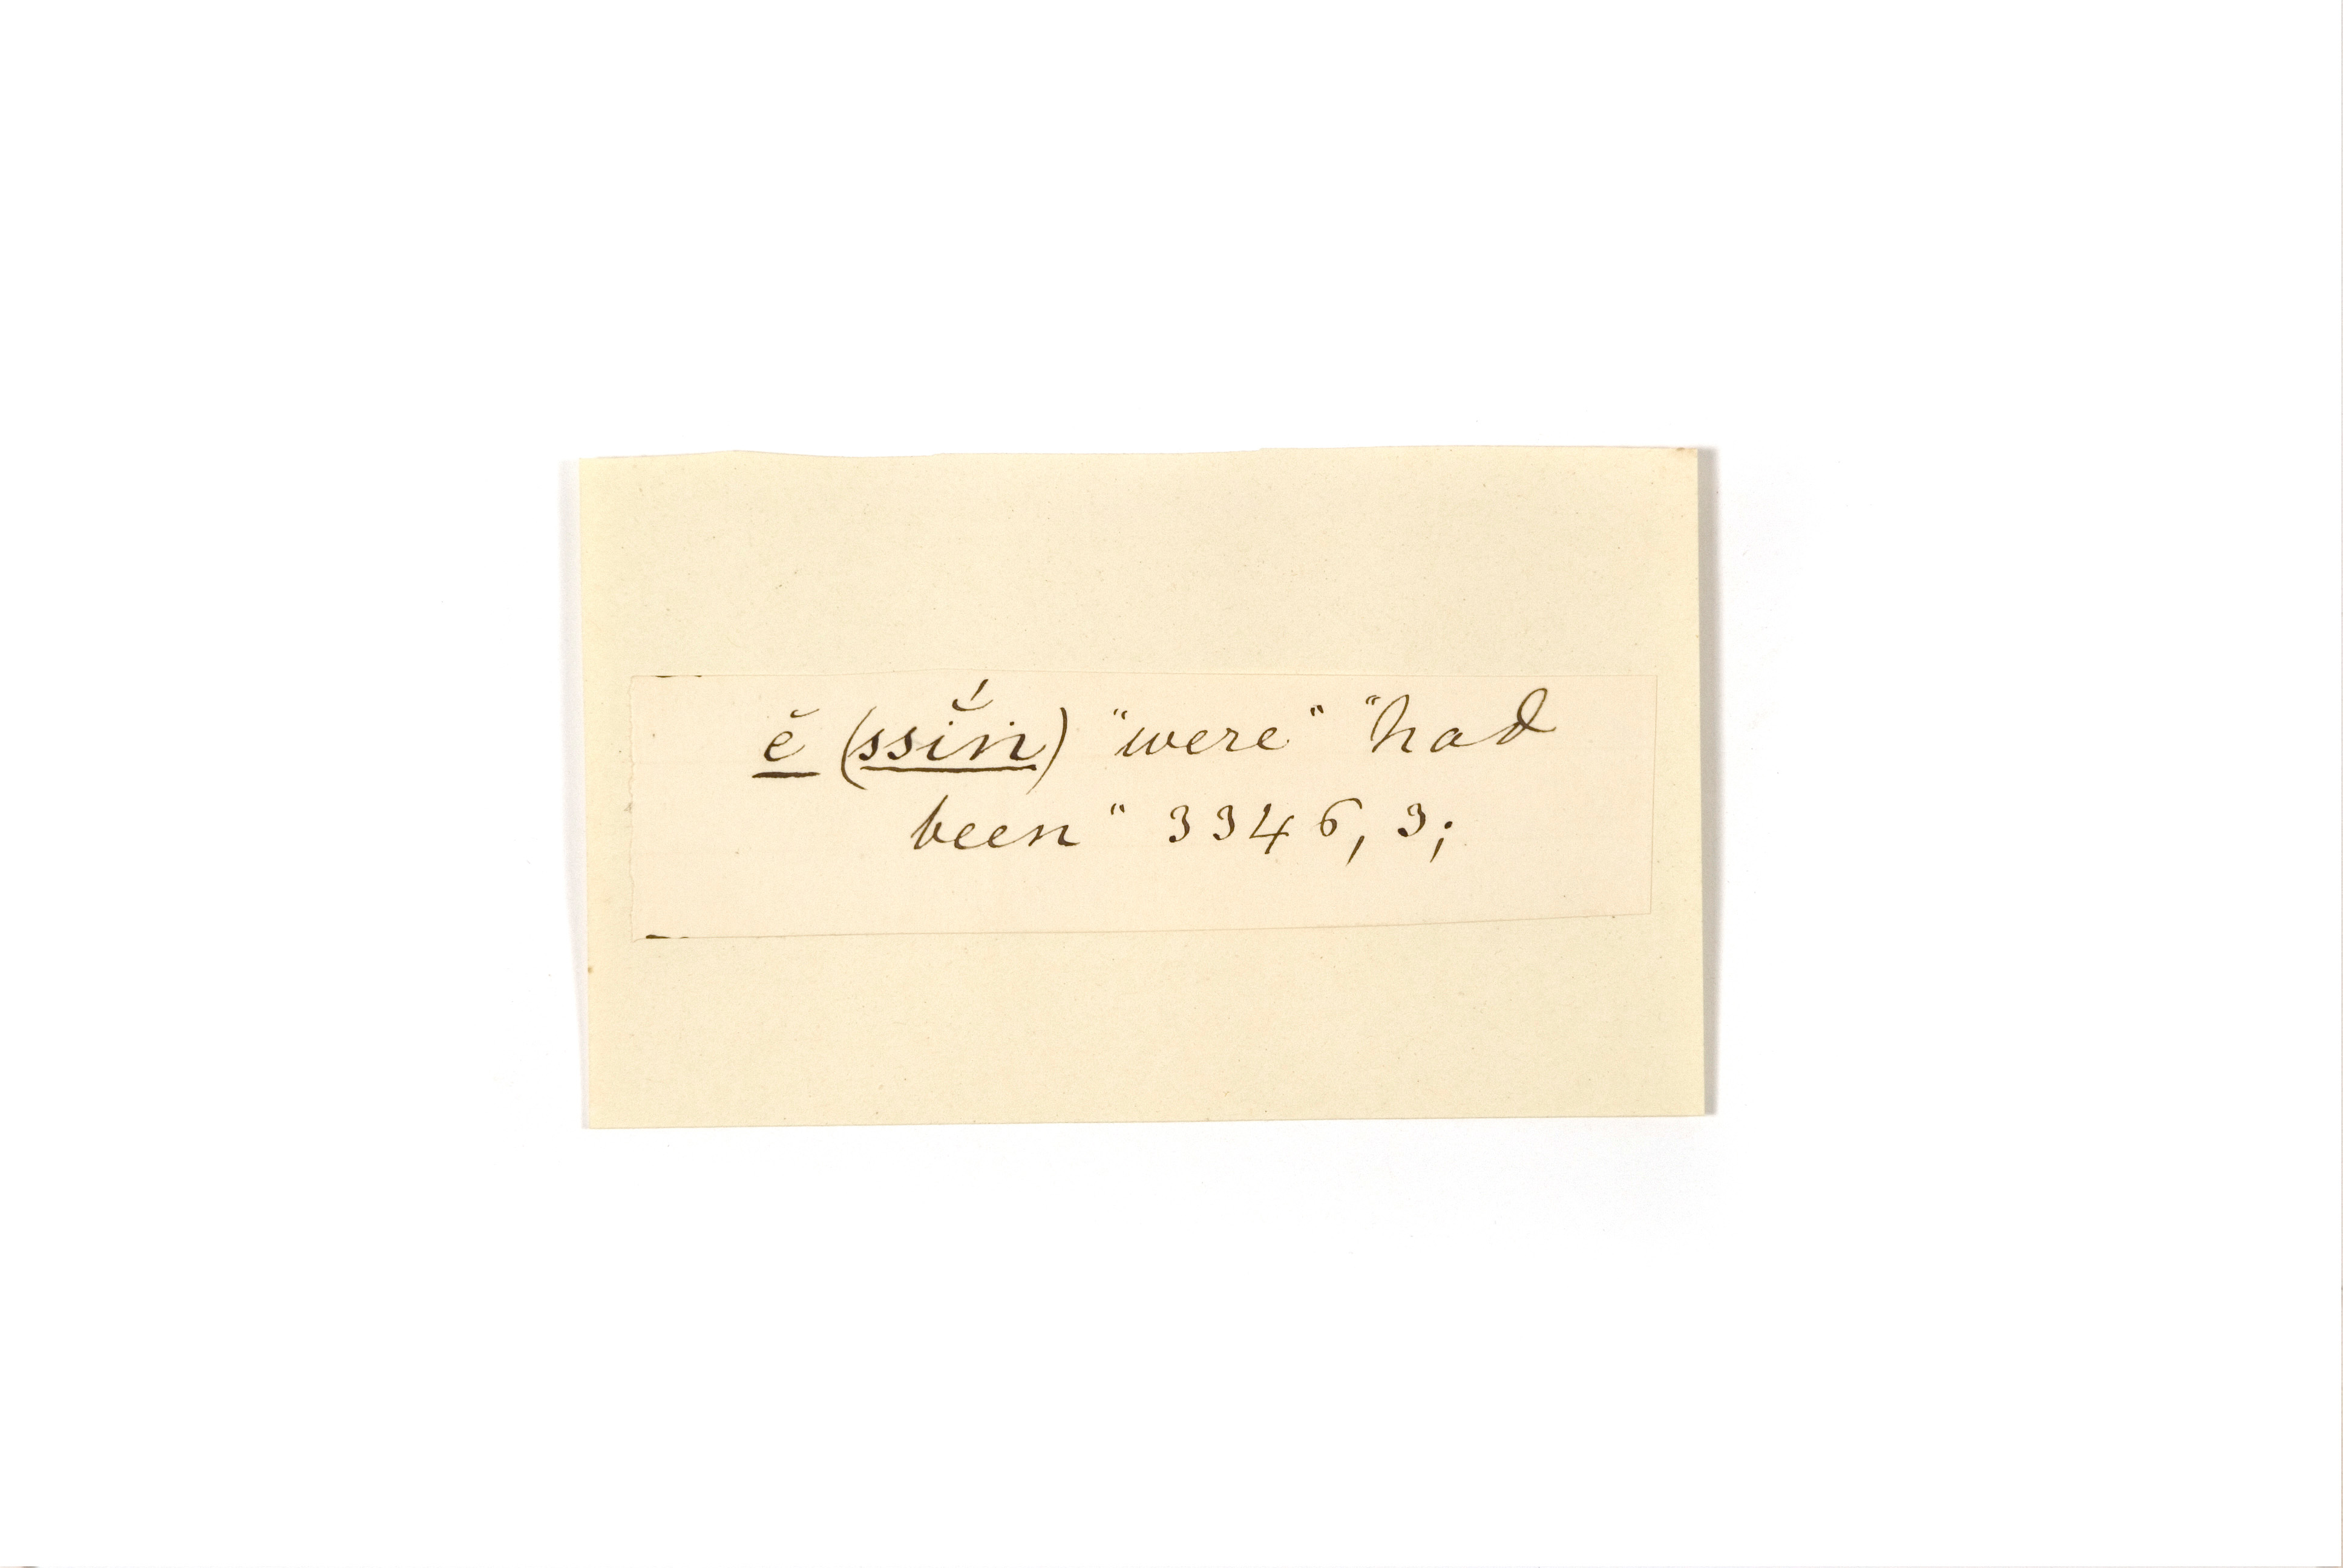 ĕ (ssĭ́ṅ) "were" "had
been" 3346, 3;